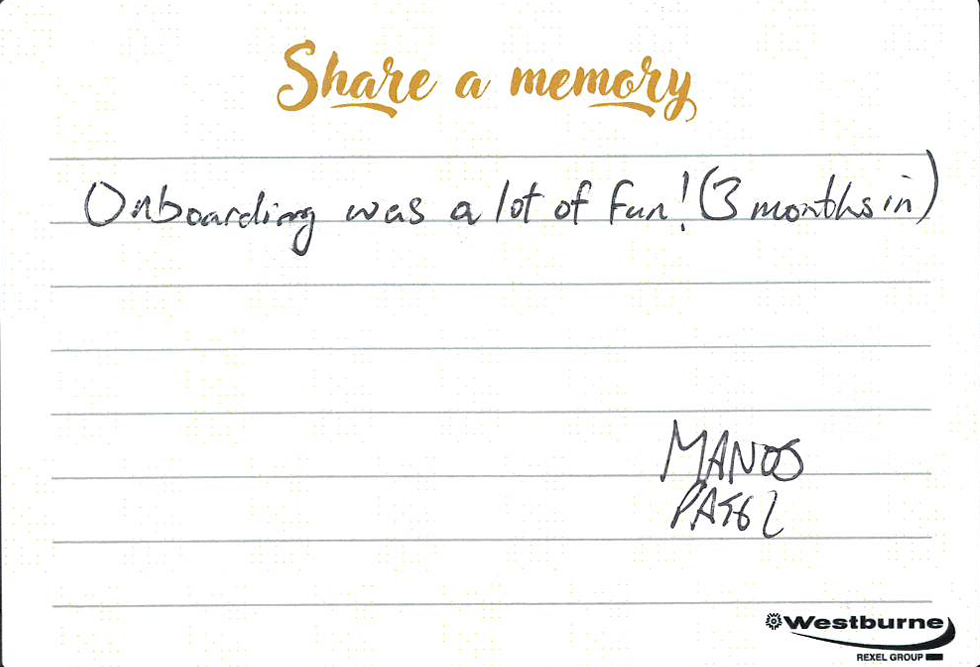 Share a memory
Onboarding was a lot of fun! (3 months in)
MANOS
PATEL
Westburne
REXEL GROUP